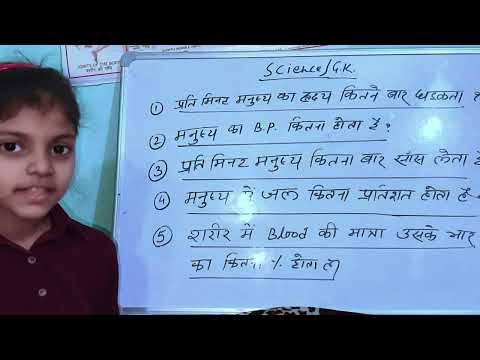 JOINTS OF THE BODY
Science/G.K.
① प्रति मिनट मनुष्य का हृदय कितने बार धडकता ?
② मनुष्य का B.P. कितना होता है?
③ प्रति मिनट मनुष्य कितना बार साँस लेता है
④ मनुष्य में जल कितना प्रतिशत होता है
⑤ शरीर में Blood की मात्रा उसके भार
का कितना % होता